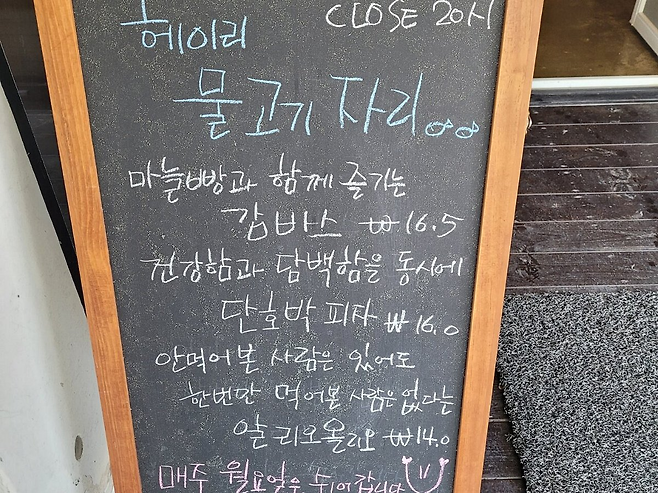 CLOSE 20시
헤이리
물고기 자리
마늘빵과 함께 즐기는
감바스 ₩16.5
건강함과 담백함을 동시에
단호박 피자 ₩16.0
안먹어본 사람은 있어도
한번만 먹어본 사람은 없다는
알리오올리오 ₩14.0
매주 월요일은 쉬어갑니다